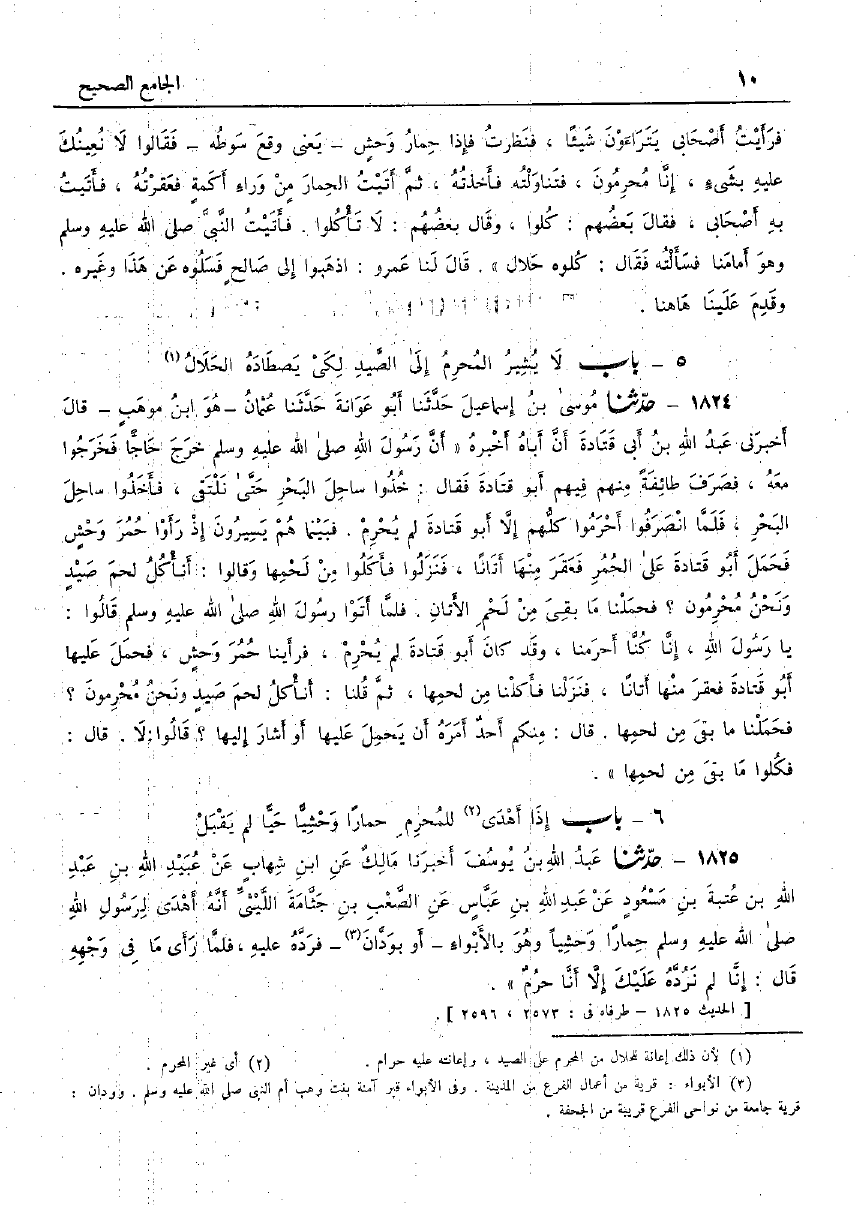 ١٠ الجامع الصحيح
فرَأَيتُ أَصْحَابى يَتَرَاءَوْنَ شَيئًا ، فنَظرتُ فإذا حِمارُ وَحشٍ – يَعنى وقعَ سَوطُه – فَقَالوا لَا نُعِينُكَ
عليهِ بشَىءٍ ، إنَّا مُحرِمُونَ ، فتَناوَلْتُه فأَخذتُهُ ، ثمَّ أَتَيْتُ الحِمارَ مِنْ وَراءِ أَكَمةٍ فعَقرْتُهُ ، فأَتَيتُ
بهِ أَصْحَابى ، فقالَ بَعضُهم : كُلوا ، وقَال بعضُهُم : لَا تَأْكُلوا . فأَتَيْتُ النَّبيَّ صلى الله عليهِ وسلم
وهوَ أَمامَنا فسأَلْتُه فَقَال : كلُوه حَلال » . قَالَ لَنا عَمرو : اذهَبوا إلى صَالحٍ فَسَلُوه عَن هَذَا وغَيره .
وقَدِمَ عَلَينَا هَاهنا .
٥ – باب لَا يُشِيرُ المُحرِمُ إلَى الصَّيدِ لِكَىْ يَصطَادَهُ الحَلَالُ (١)
١٨٢٤ – حدّثنا مُوسىٰ بنُ إسماعيلَ حَدَّثَنا أَبُو عَوَانةَ حَدَّثَنا عُثمانُ – هُوَ ابنُ موهَبٍ – قالَ
أَخبرَنى عَبدُ اللهِ بنُ أَبى قَتَادةَ أَنَّ أَباهُ أَخْبرهُ « أَنَّ رَسُولَ اللهِ صلىٰ اللهُ عليهِ وسلم خرَجَ حَاجًّا فَخَرَجُوا
معَهُ ، فصَرَفَ طائِفَةً مِنهم فِيهم أَبو قتَادةَ فَقال : خُذُوا ساحِلَ البَحْرِ حَتَّىٰ نَلْتَقى ، فأَخَذُوا ساحِلَ
البَحْرِ ، فَلَمَّا انْصَرَفُوا أَحْرَمُوا كلُّهم إلَّا أَبو قتَادةَ لم يُحْرِمْ . فبَيْنما هُمْ يَسِيرُونَ إذْ رَأَوْا حُمُرَ وَحْشٍ
فَحمَلَ أَبُو قَتَادةَ عَلَىٰ الحُمُرِ فَعقَرَ مِنْهَا أَتَانًا ، فَنَزَلُوا فأَكَلُوا مِنْ لَحْمِها وَقالوا : أَنأْكُلُ لحمَ صَيْدٍ
وَنَحْنُ مُحْرِمُون ؟ فحمَلْنا مَا بقىَ مِنْ لَحْمِ الأَتانِ . فلمَّا أَتَوْا رسُولَ اللهِ صلىٰ الله عليهِ وسلم قَالُوا :
يا رَسُولَ اللهِ ، إنَّا كُنَّا أَحرَمنا ، وقَد كانَ أَبو قَتَادةَ لم يُحْرِمْ ، فرأَينا حُمُرَ وَحشٍ ، فحمَلَ عَليها
أَبُو قَتَادةَ فعقرَ منْها أَتانًا ، فنَزَلْنا فأَكلْنا مِن لحمِها ، ثمَّ قُلنا : أَنأْكلُ لحمَ صَيدٍ ونَحنُ مُحْرِمونَ ؟
فحَمَلْنا ما بقىَ مِن لحمِها . قال : مِنكم أَحدٌ أَمَرَهُ أَن يَحمِلَ عَليها أَو أَشارَ إليها ؟ قَالُوا : لَا . قال :
فكُلوا مَا بقىَ مِن لحمِها » .
٦ – باب إذَا أَهْدَى (٢) للمُحرِمِ حمارًا وَحْشِيًّا حَيًّا لم يَقْبَلْ
١٨٢٥ – حدّثنا عَبدُ اللهِ بنُ يُوسُفَ أَخبرَنا مَالِكٌ عَنِ ابنِ شِهابٍ عَنْ عُبَيْدِ اللهِ بنِ عَبْدِ
اللهِ بنِ عُتبةَ بنِ مَسْعُودٍ عَنْ عَبدِ اللهِ بنِ عَبَّاسٍ عَنِ الصَّعْبِ بنِ جَثَّامَةَ اللَّيثىِّ أَنَّهُ أَهْدَى لِرَسُولِ اللهِ
صلىٰ اللهُ عليهِ وسلم حِمارًا وَحْشِياً وهُوَ بالأَبْواءِ – أَو بوَدَّانَ (٣) – فرَدَّهُ عليهِ ، فلمَّا رَأَى مَا فى وَجْهِهِ
قَالَ : إنَّا لم نَرُدَّهُ عَلَيْكَ إلَّا أَنَّا حرُمٌ » .
[ الحديث ١٨٢٥ – طرفاه فى : ٢٥٧٣ ، ٢٥٩٦ ] .
(١) لأن ذلك إعانة للحلال من المحرم على الصيد ، وإعانته عليه حرام . (٢) أى غير المحرم .
(٣) الأبواء : قرية من أعمال الفرع من المدينة . وفى الأبواء قبر آمنة بنت وهب أم النبى صلى الله عليه وسلم . وودان :
قرية جامعة من نواحى الفرع قريبة من الجحفة .